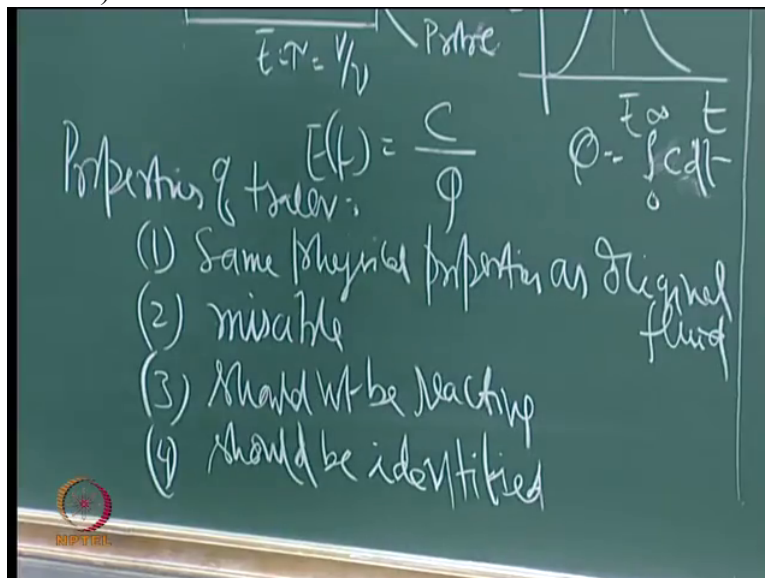 t̄ = τ = V/v
Probe
t̄ t
E(t) = C/φ
φ = ∫₀^∞ C dt
Properties of tracer:
(1) Same physical properties as original fluid
(2) misable
(3) should not be reacting
(4) should be identified
NPTEL